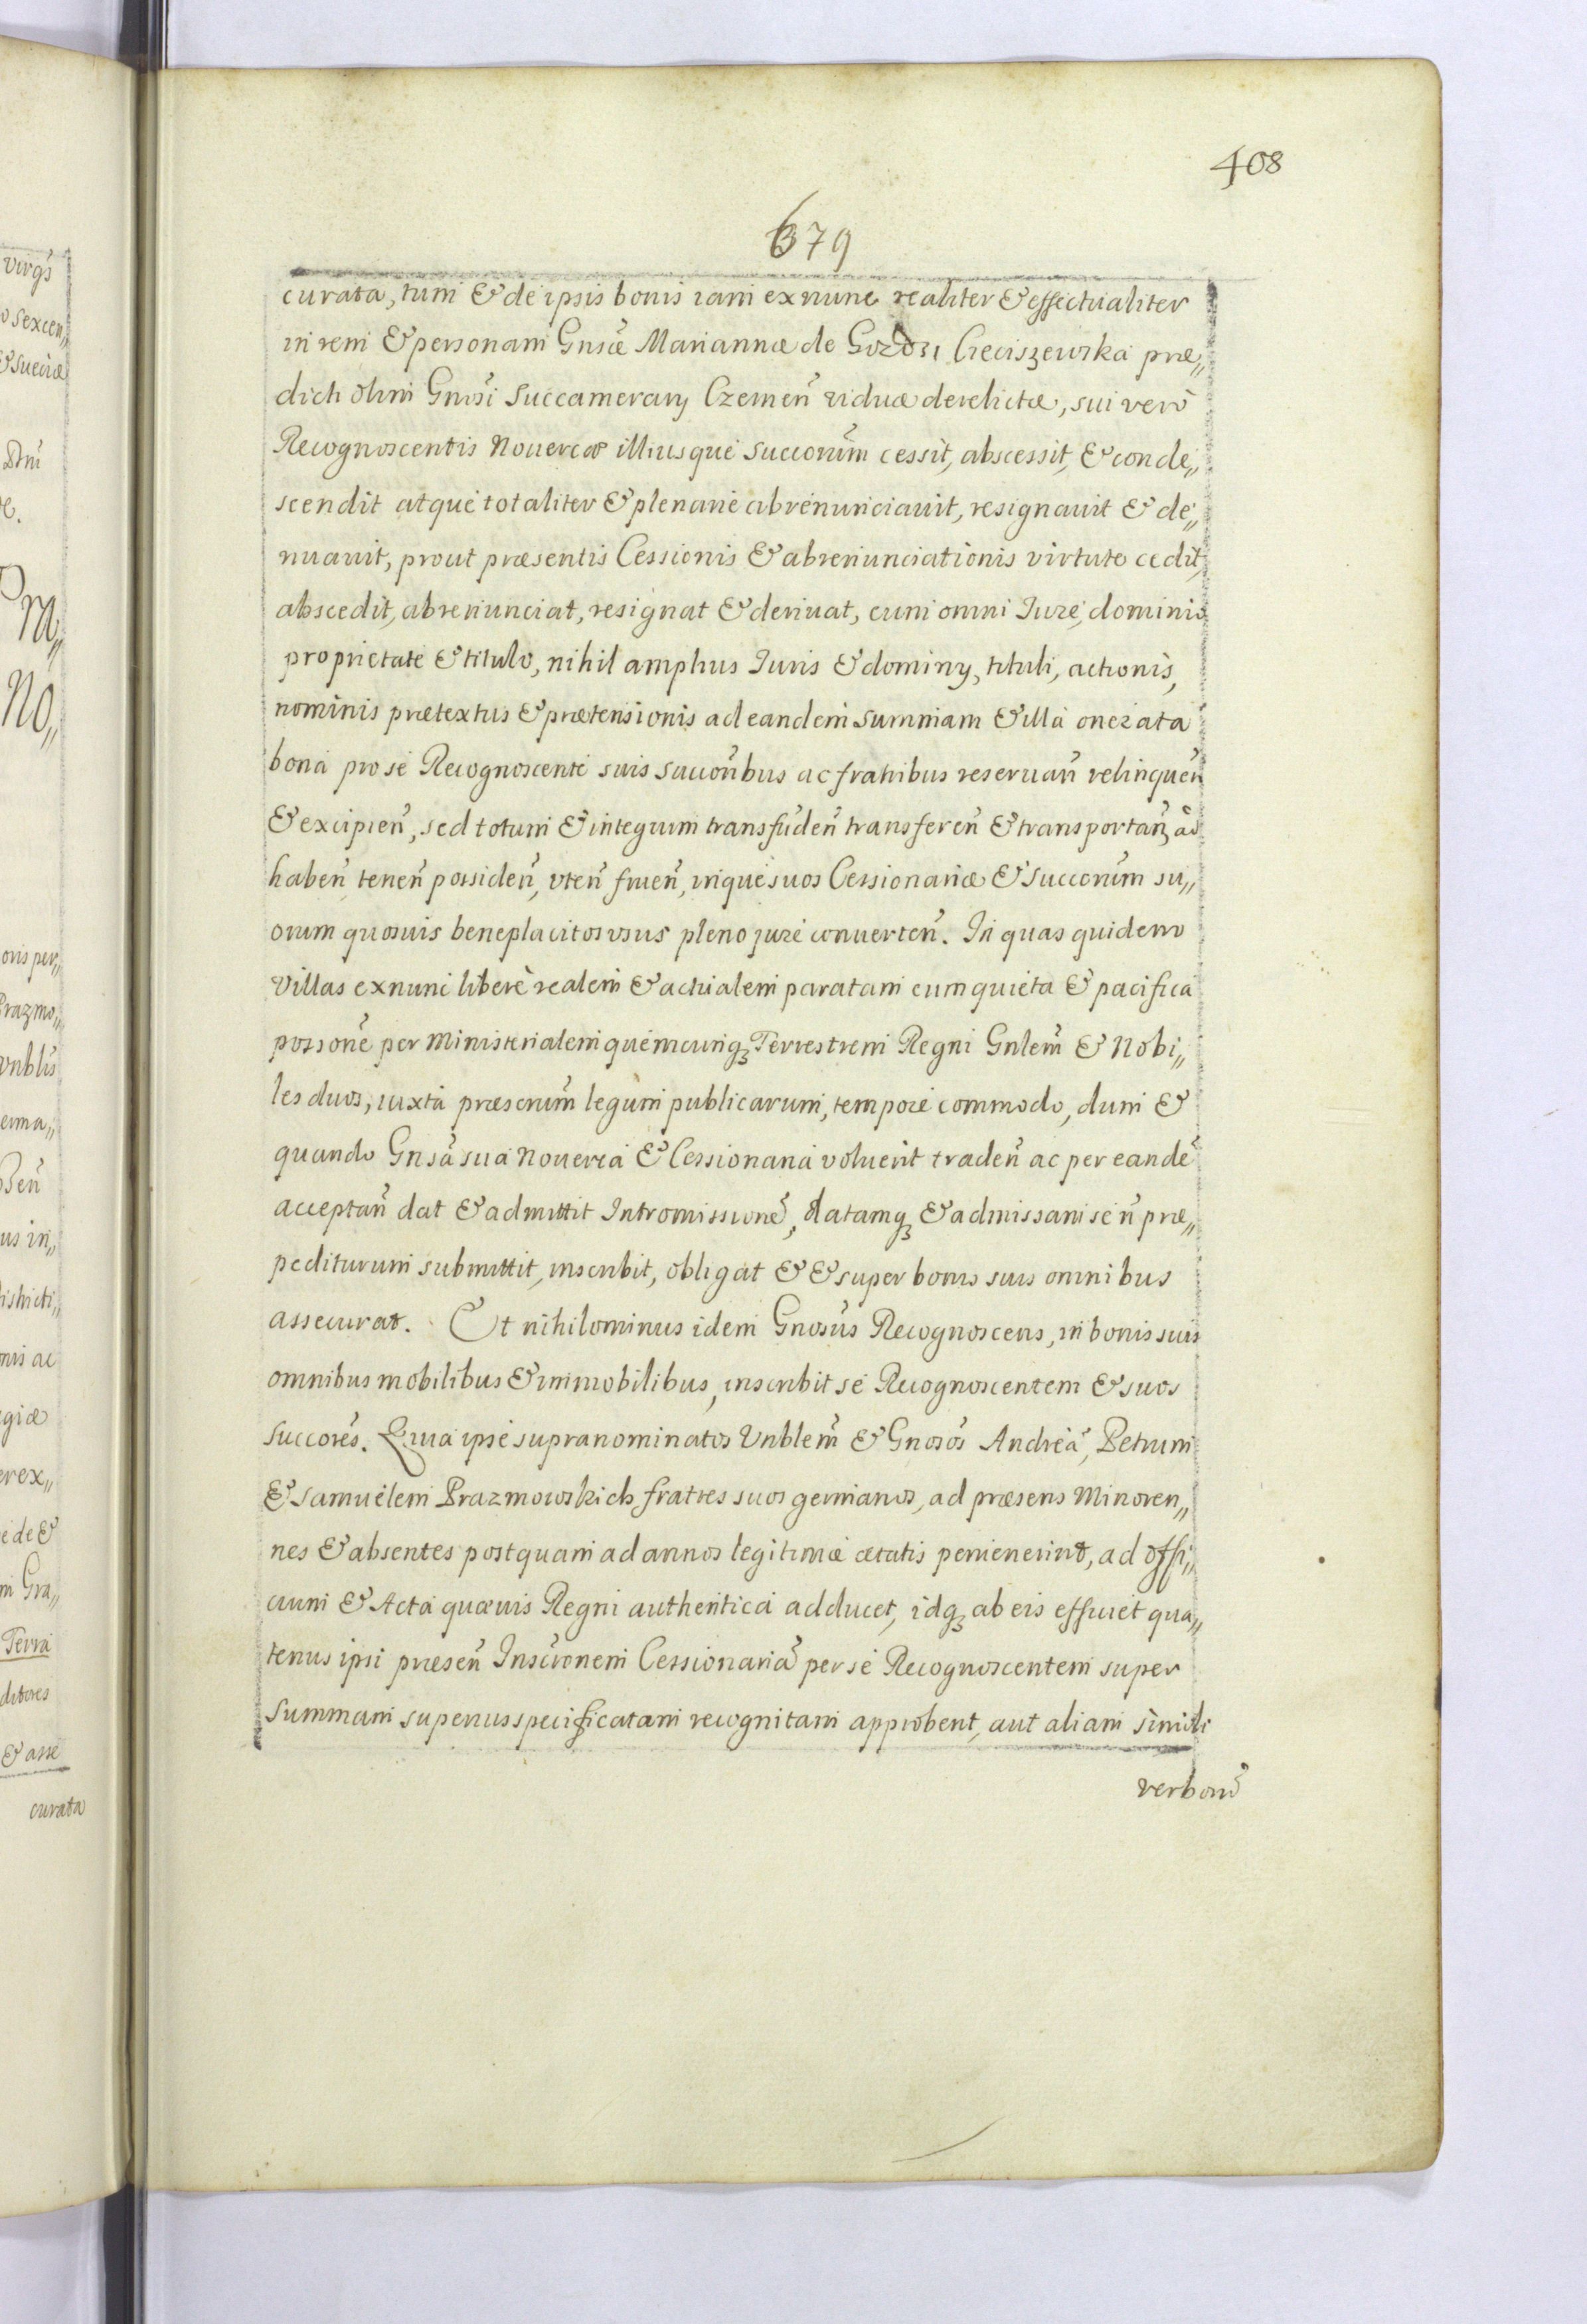 408
679
curata, tum & de ipsis bonis iam exnunc realiter & effectualiter
in rem & personam Gnsæ Mariannæ de Gozdzi Cieciszewska præ„
dicti olim Gnosi Succamerarÿ Czerneñ viduæ derelictæ, sui verò
Recognoscentis Nouercæ illiusque succorum̃ cessit, abscessit, & conde„
scendit atque totaliter & plenarie abrenunciauit, resignauit & de„
nuauit, prout præsentis Cessionis & abrenunciationis virtute cedit,
abscedit, abrenunciat, resignat & deriuat, cum omni Iure, dominio
proprietate & titulo, nihil amplius Iuris & dominÿ, tituli, actionis,
nominis prætextus & prætensionis ad eandem summam & illa onerata
bona pro se Recognoscente suis succoribus̃ ac fratribus reseruañ relinqueñ
& excipieñ, sed totum & integrum transfũdeñ transfereñ & transportañ, ad
habeñ teneñ possideñ, vteñ frueñ, inque suos Cessionariæ & succorum̃ su„
orum quosuis beneplacitos vsus pleno jure conuerteñ. In quas quidem
villas exnunc liberè realem & actualem paratam cum quieta & pacifica
possone᷃ per Ministerialem quemcunq₃ Terrestrem Regni Gnlem̃ & Nobi„
les duos, iuxta præscrum̃ legum publicarum, tempore commodo, dum &
quando Gnsã sua Nouerca & Cessionaria voluerit tradeñ ac per eandẽ
acceptañ dat & admittit Intromissionẽ, datamq₃ & admissam se ñ præ„
pediturum submittit, inscribit, obligat & & super bonis suis omnibus
assecurat. Et nihilominus idem Gnosũs Recognoscens, in bonis suis
omnibus mobilibus & immobilibus, inscribit se Recognoscentem & suos
succorẽs. Quia ipse supranominatos Vnblem̃ & Gnosõs Andreã, Petrum
& Samuelem Prazmowskich fratres suos germanos, ad præsens Minoren„
nes & absentes postquam ad annos legitimæ ætatis peruenerint, ad Offi„
cium & Acta quæuis Regni authentica adducet, idq₃ ab eis efficiet qua„
tenus ipsi præseñ Inscrõnem Cessionariã per se Recognoscentem super
summam superius specificatam recognitam approbent, aut aliam simili
verborũ
virgs̃
o sexcen„
& Sueciæ
oris per„
Prazmo„
Vnblis̃
us in„
istricti„
giæ
erex„
e de &
m Gra„
Terra
ditores
& asse
curata